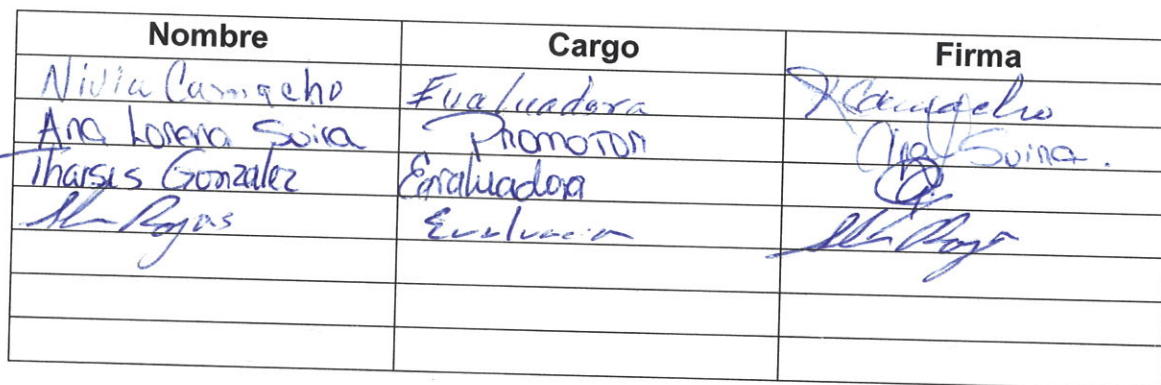 Nombre Cargo Firma
Nivia Camacho Evaluadora Camacho
Ana Lorena Suira Promotor Ana Suira.
Tharsis Gonzalez Evaluadora
Rojas Evaluacion Rojas